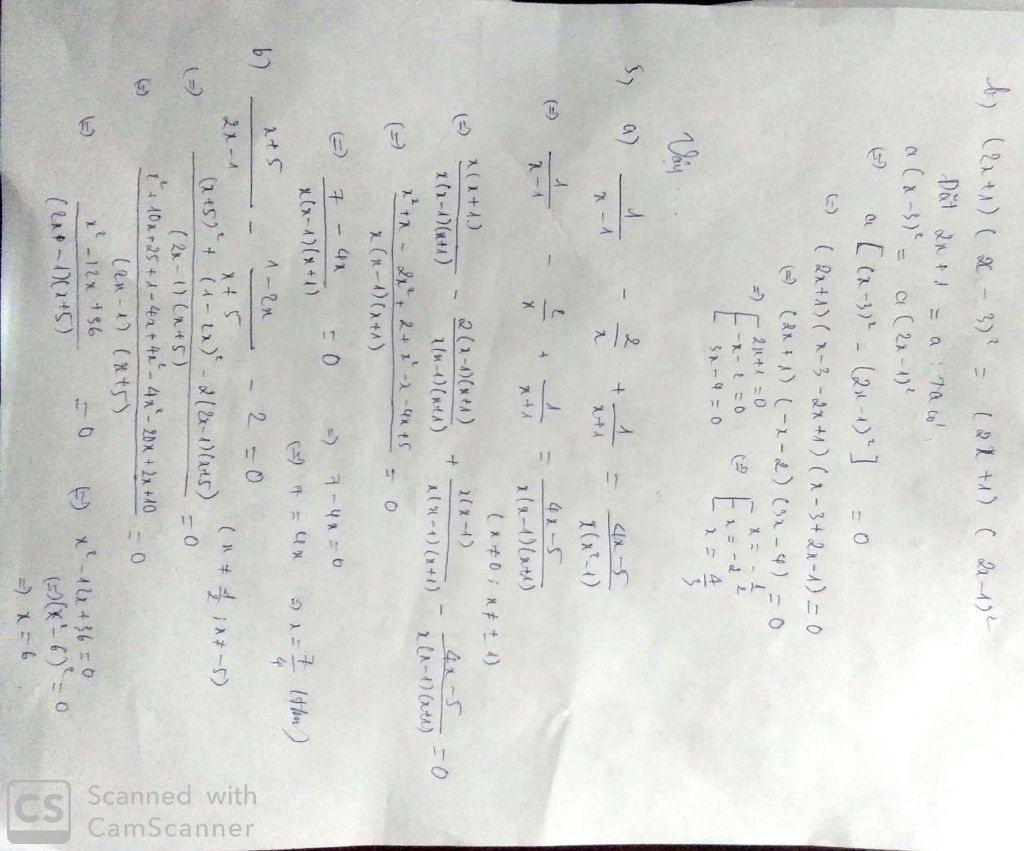 b) (2x+1)(x-3)² = (2x+1)(2x-1)²
Đặt 2x+1 = a. Ta có:
a(x-3)² = a(2x-1)²
(=) a[(x-3)² - (2x-1)²] = 0
(=) (2x+1)(x-3-2x+1)(x-3+2x-1) = 0
(=) (2x+1)(-x-2)(3x-4) = 0
=) [ 2x+1=0 (=) [ x = -1/2
-x-2=0 x=-2
3x-4=0 x = 4/3
Vậy
5) a) 1/(x-1) - 2/x + 1/(x+1) = (4x-5)/(x(x²-1))
(=) 1/(x-1) - 2/x + 1/(x+1) = (4x-5)/(x(x-1)(x+1))
(x≠0; x≠±1)
(=) x(x+1)/(x(x-1)(x+1)) - 2(x-1)(x+1)/(x(x-1)(x+1)) + x(x-1)/(x(x-1)(x+1)) - (4x-5)/(x(x-1)(x+1)) = 0
(=) (x²+x - 2x²+2+x²-x-4x+5)/(x(x-1)(x+1)) = 0
(=) (7-4x)/(x(x-1)(x+1)) = 0 =) 7-4x=0
(=) 7=4x =) x=7/4 (t/m)
b) (x+5)/(2x-1) - (1-2x)/(x+5) - 2 = 0
(=) ((x+5)² + (1-2x)² - 2(2x-1)(x+5))/((2x-1)(x+5)) = 0 (x≠1/2; x≠-5)
(=) (x²+10x+25+1-4x+4x²-4x²-20x+2x+10)/((2x-1)(x+5)) = 0
(=) (x²-12x+36)/((2x-1)(x+5)) = 0 (=) x²-12x+36=0
(=) (x-6)²=0
=) x=6
CS Scanned with
CamScanner